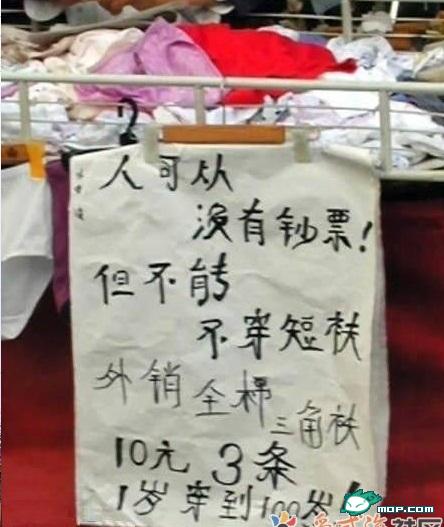 人可从
没有钞票!
但不能
不穿短袄
外销全棉
三角袄
10元3条
1岁穿到100岁!
MOP.COM